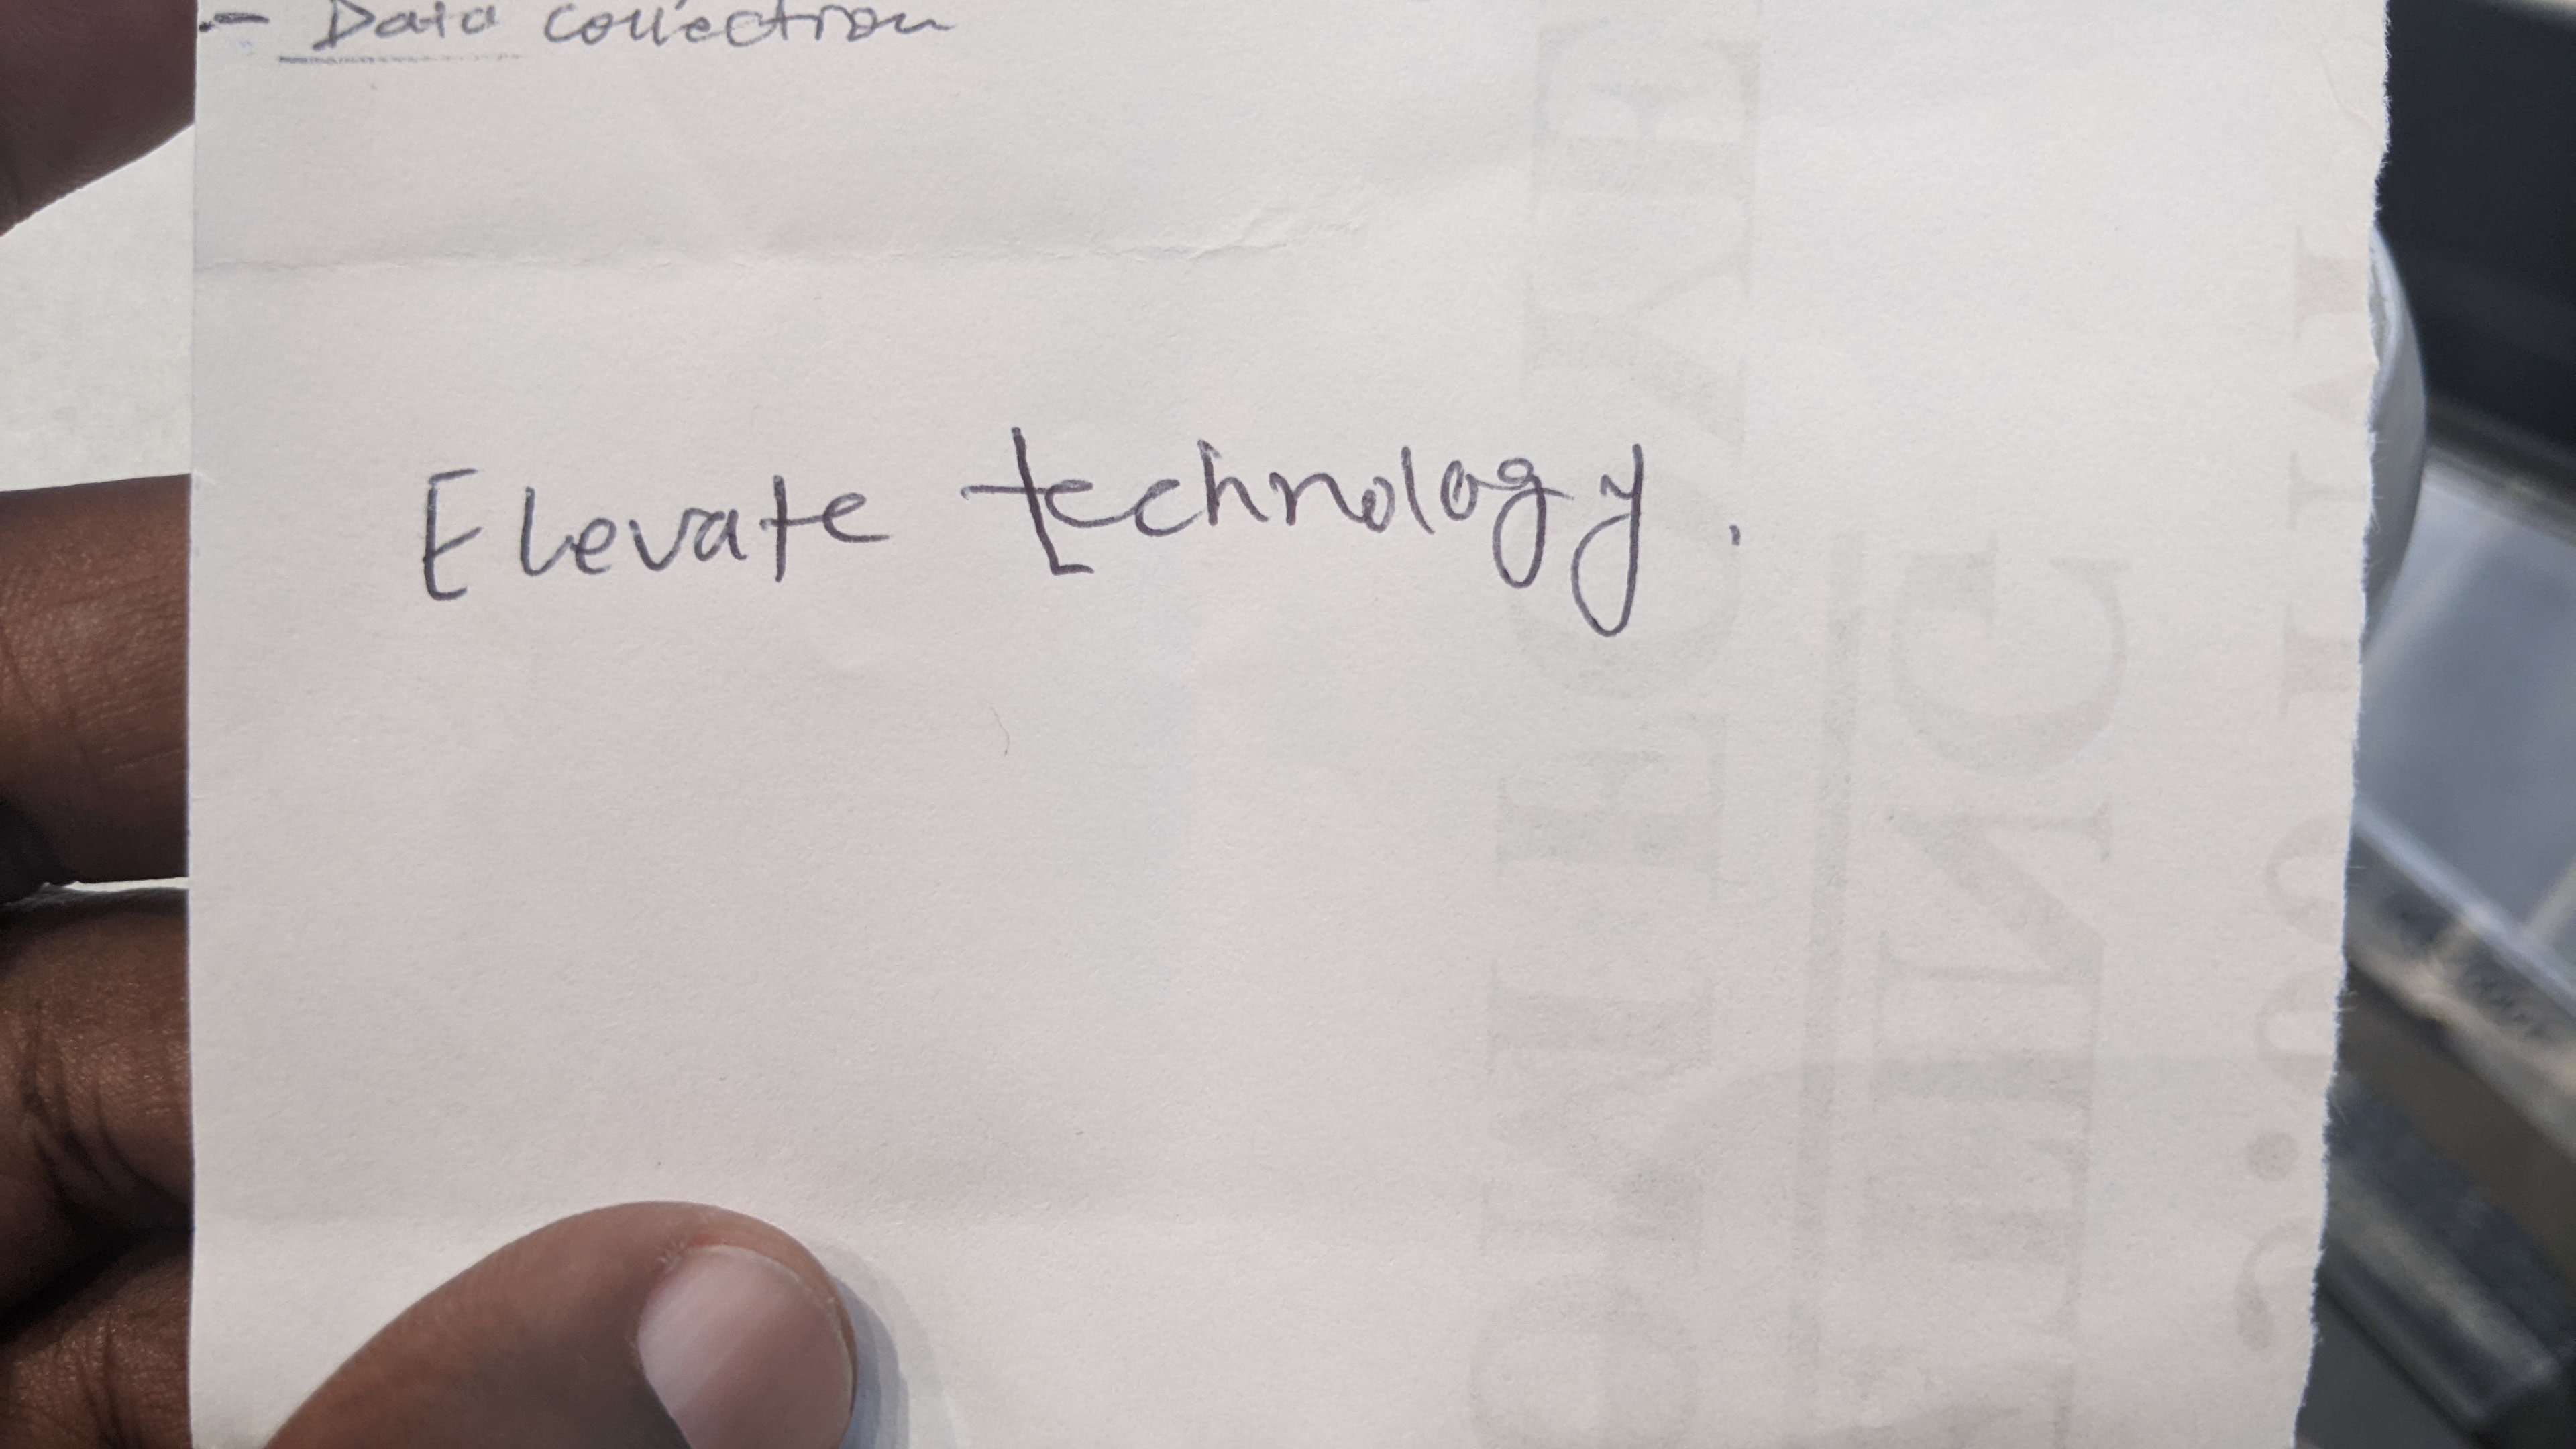 - Data collection
Elevate technology.